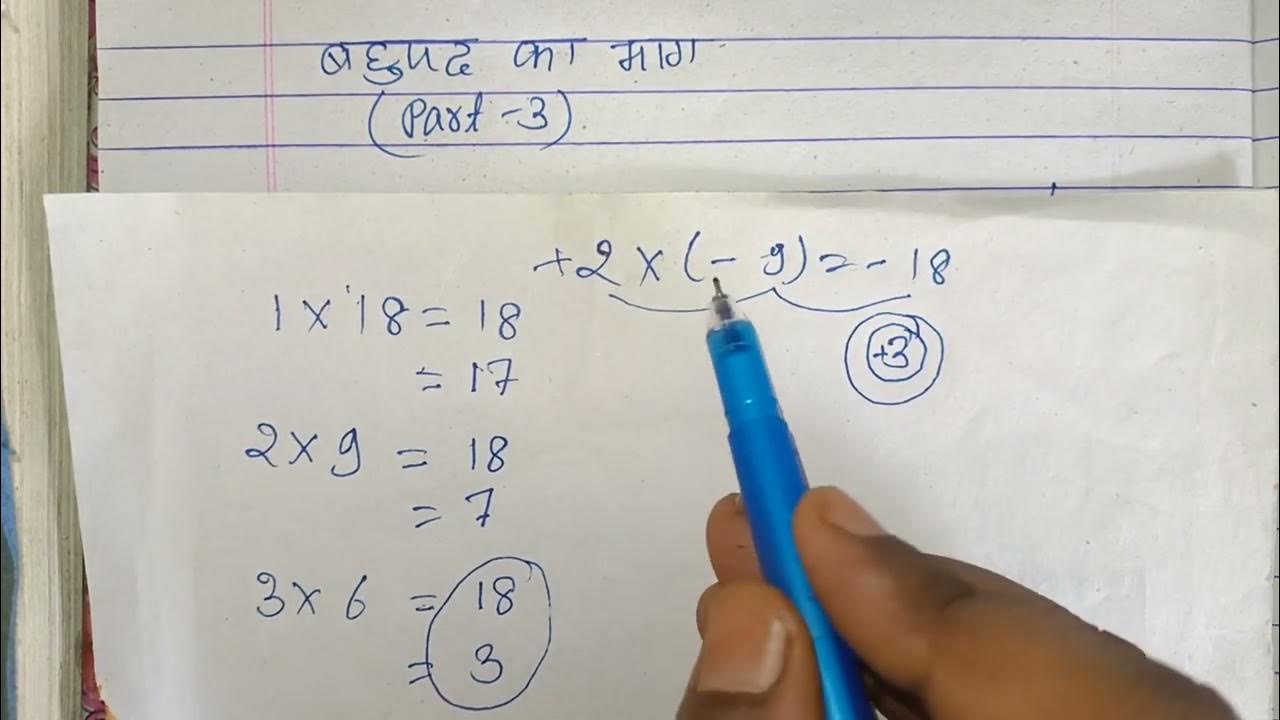 बहुपद का भाग
(Part -3)
+2 × (- 9) = - 18
+3
1 × 18 = 18
= 17
2 × 9 = 18
= 7
3 × 6 = 18
= 3